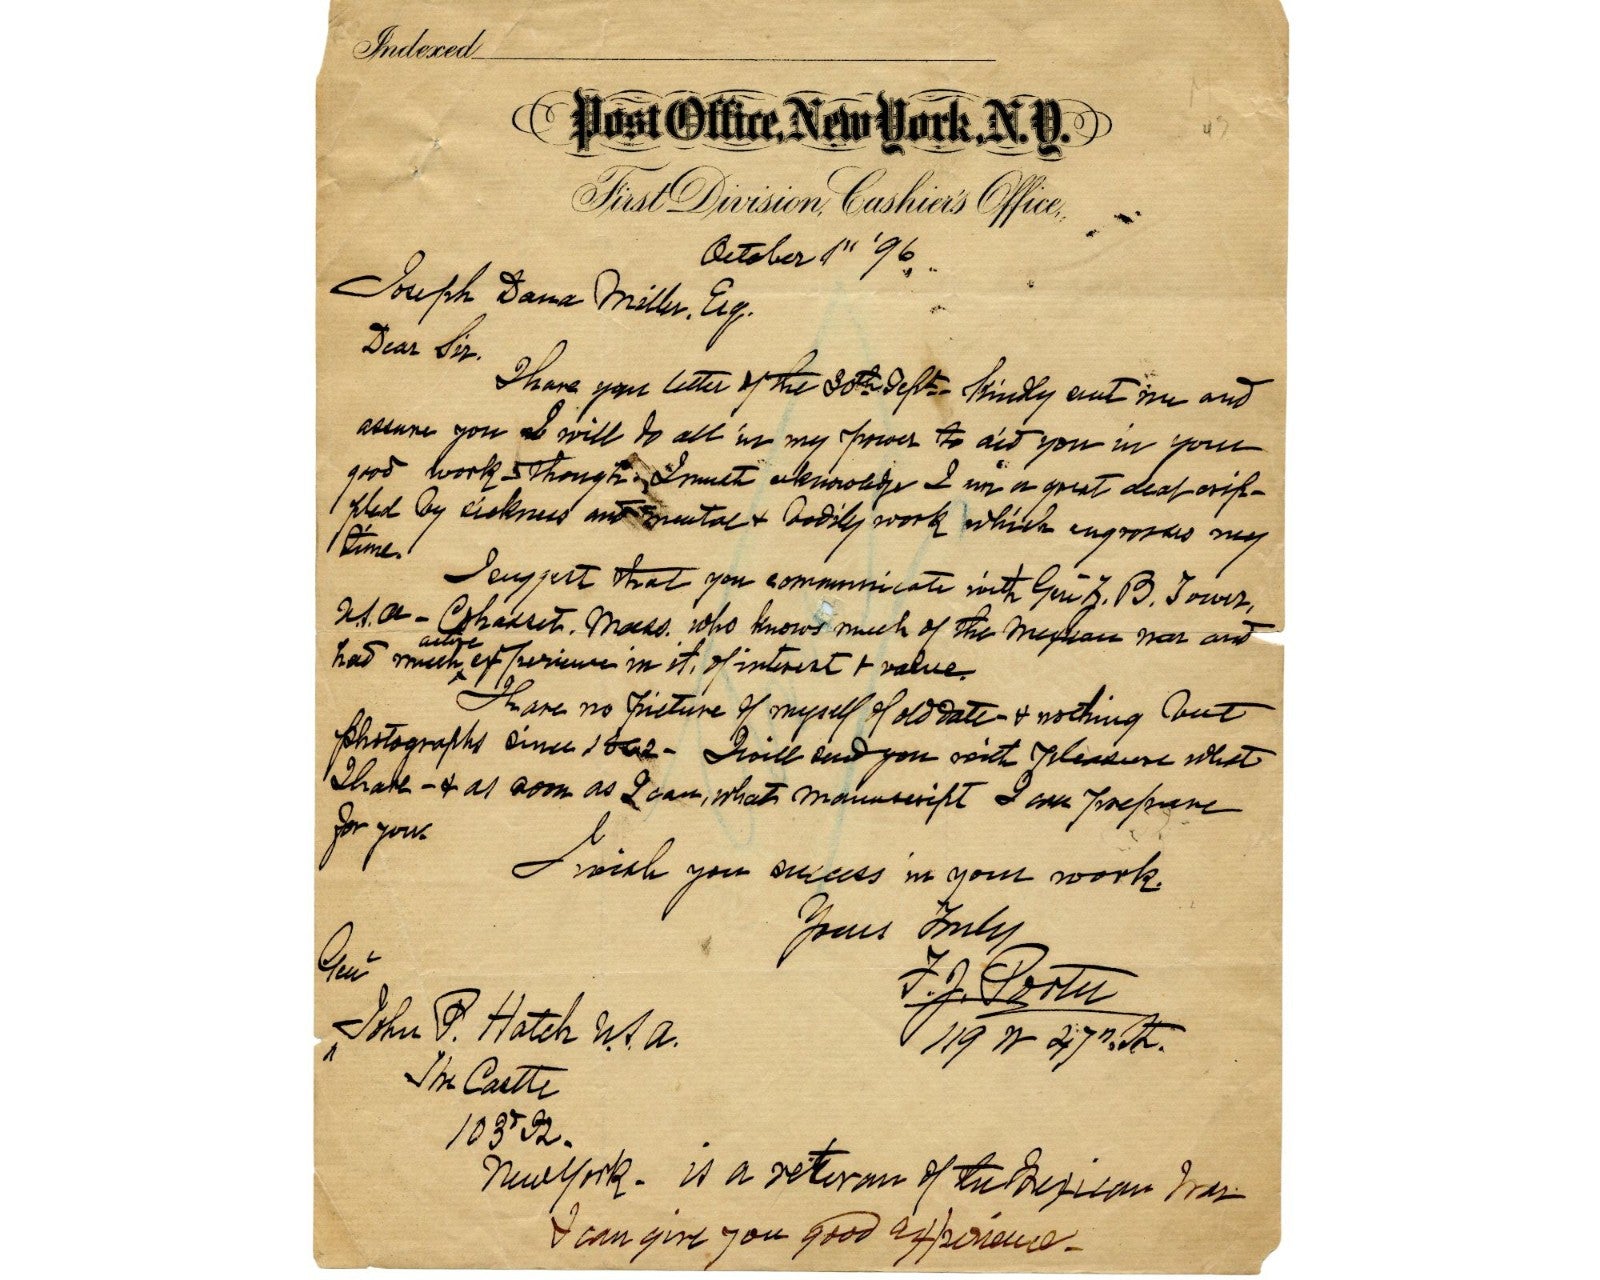 Indexed
Post Office, New York, N.Y.
First Division, Cashier's Office,
October 1st '96
Joseph Dana Miller, Esq.
Dear Sir.
I have your letter of the 30th Sept - kindly sent me and
assure you I will do all in my power to aid you in your
good work - though I must acknowledge I am a great deal crip-
pled by sickness and mental & bodily work which engrosses my
time.
I suggest that you communicate with Genl Z. B. Tower,
U.S.A - Cohasset. Mass. who knows much of the Mexican war and
had much active experience in it, of interest & value.
I have no picture of myself of old date - & nothing but
photographs since 1862 - I will send you with pleasure what
I have - & as soon as I can, what manuscript I can prepare
for you.
I wish you success in your work.
Yours Truly
F. J. Porter
119 W 47th St.
Genl
John P. Hatch U.S.A.
The Castle
103d St.
New York - is a veteran of the Mexican War
& can give you good experience -